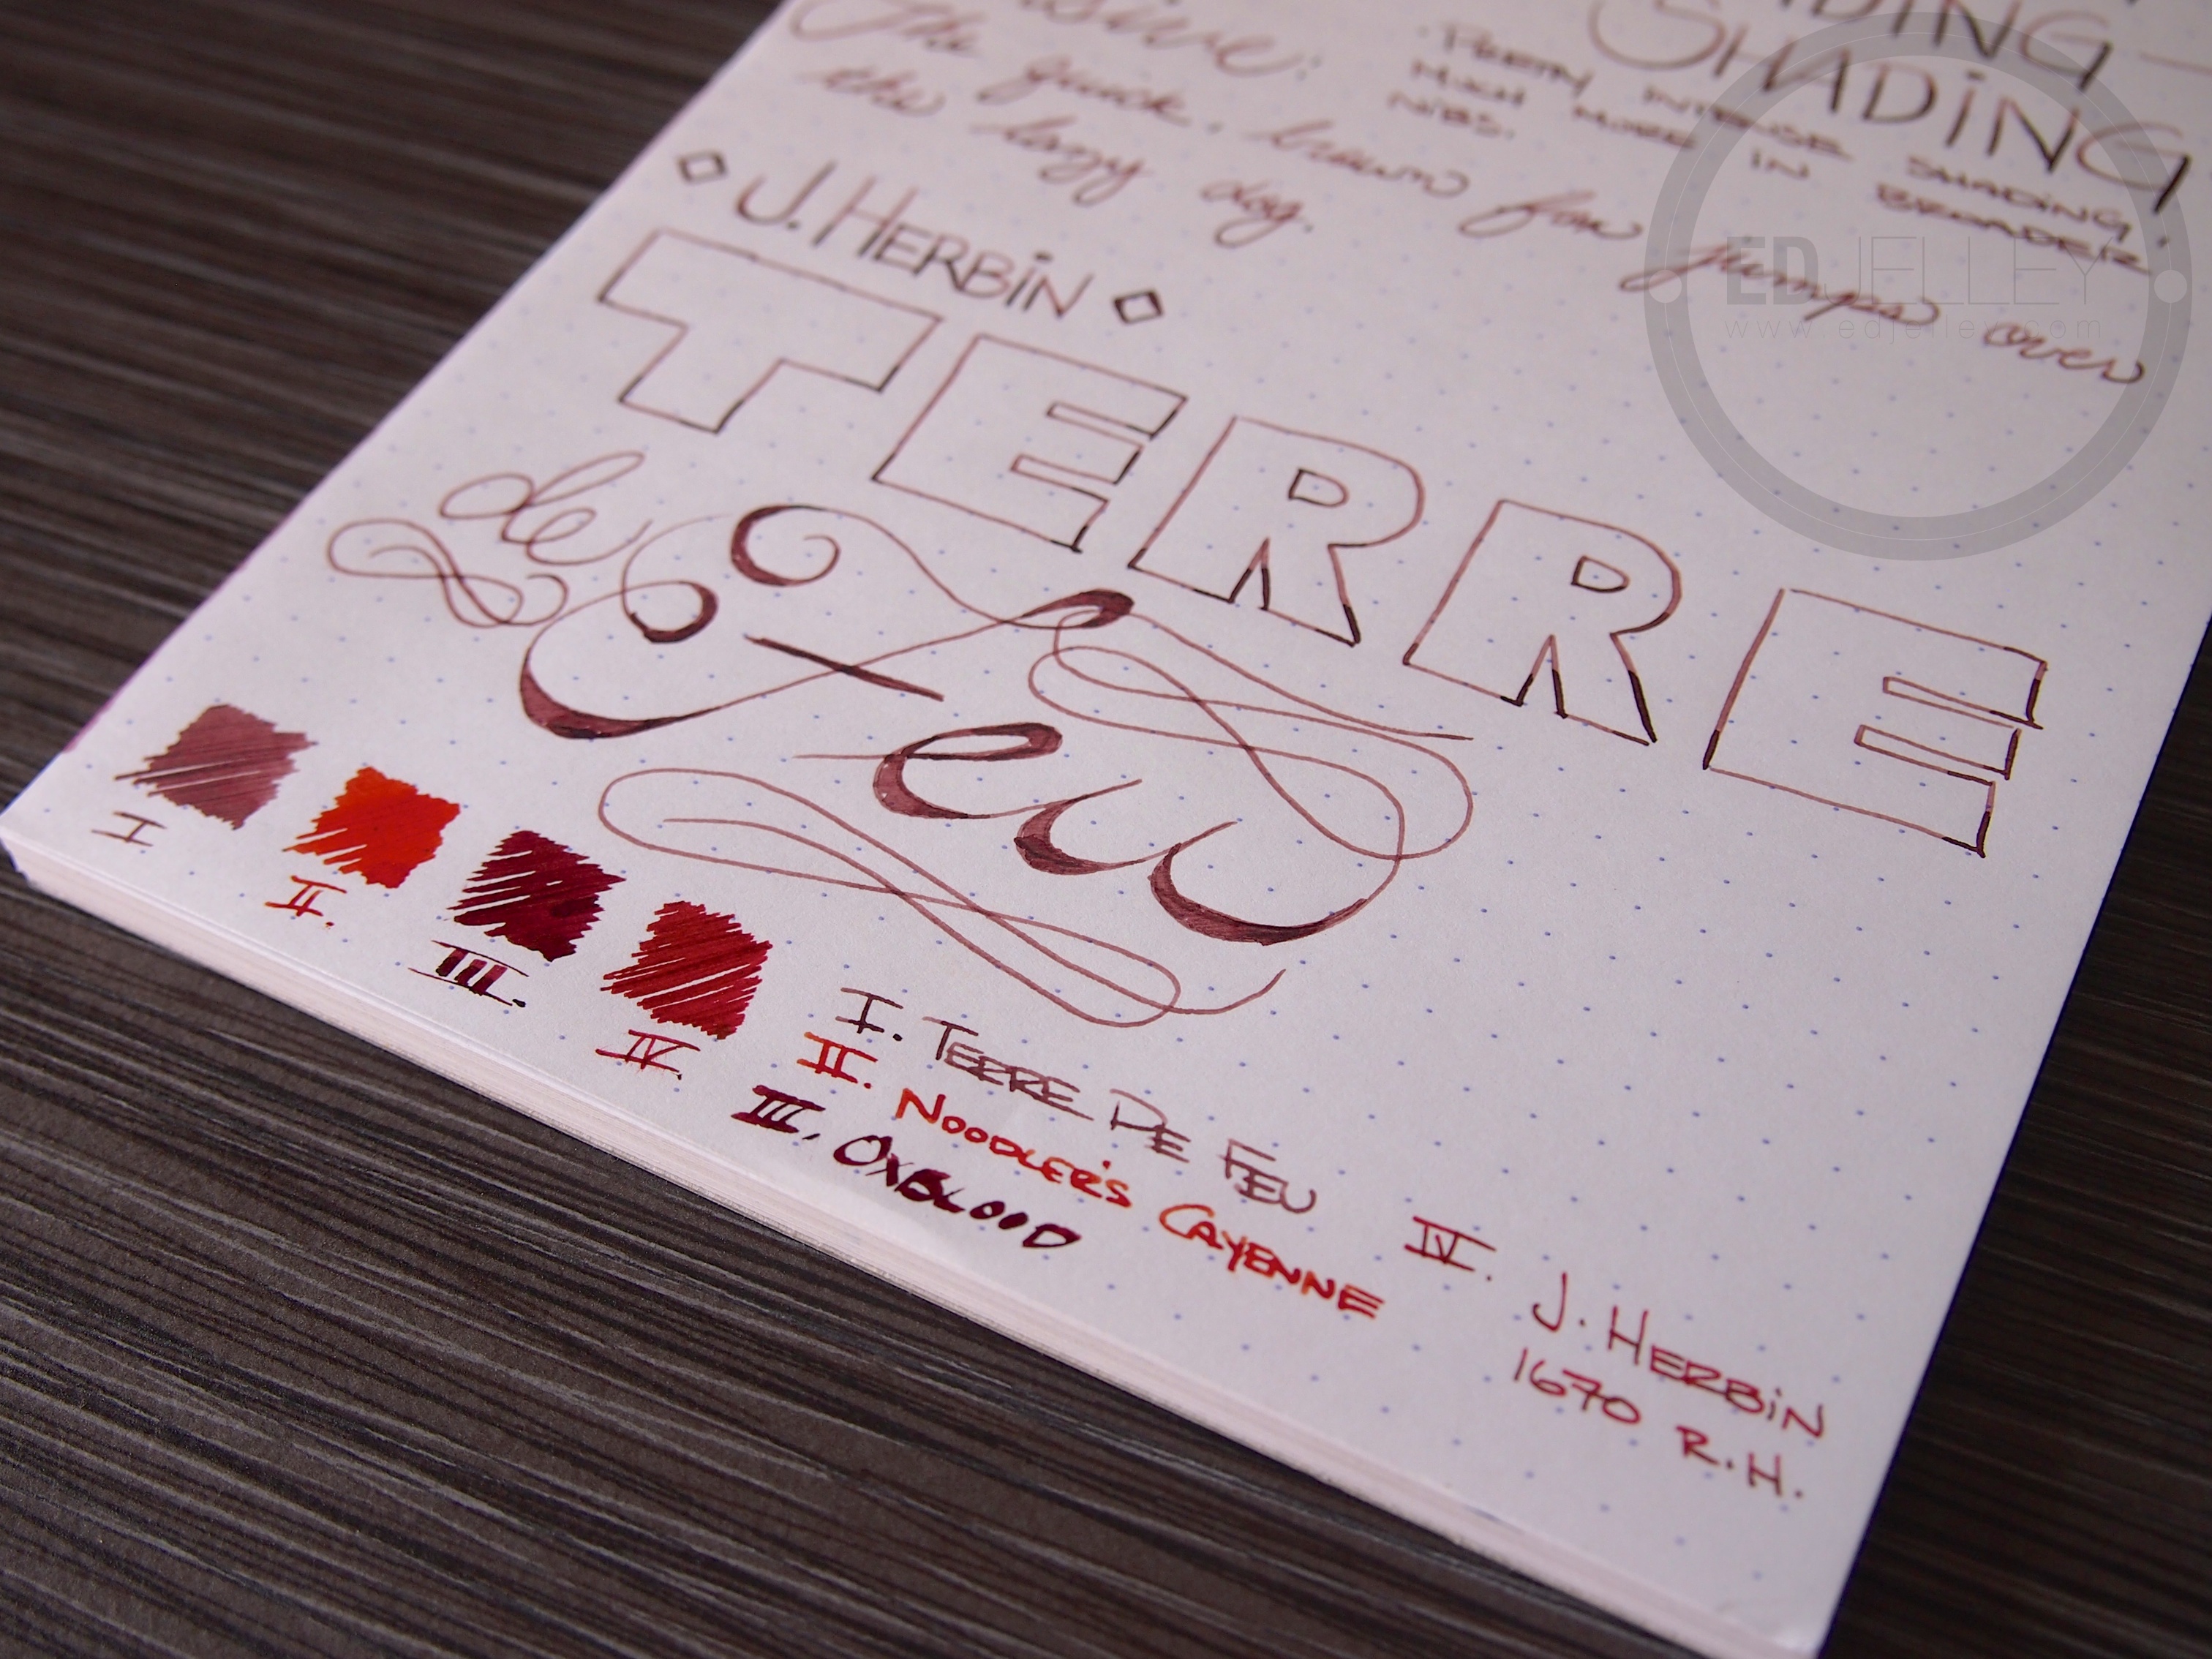 SHADING
· PRETTY INTENSE SHADING,
MUCH MORE IN BROADER
NIBS.
The quick, brown fox jumps over
the lazy dog.
J. HERBIN
TERRE
de Feu
I
II.
III.
IV.
I. TERRE DE FEU
II. NOODLER'S CAYENNE
III. OXBLOOD
IV. J. HERBIN
1670 R.H.
EDJELLEY
www.edjelley.com